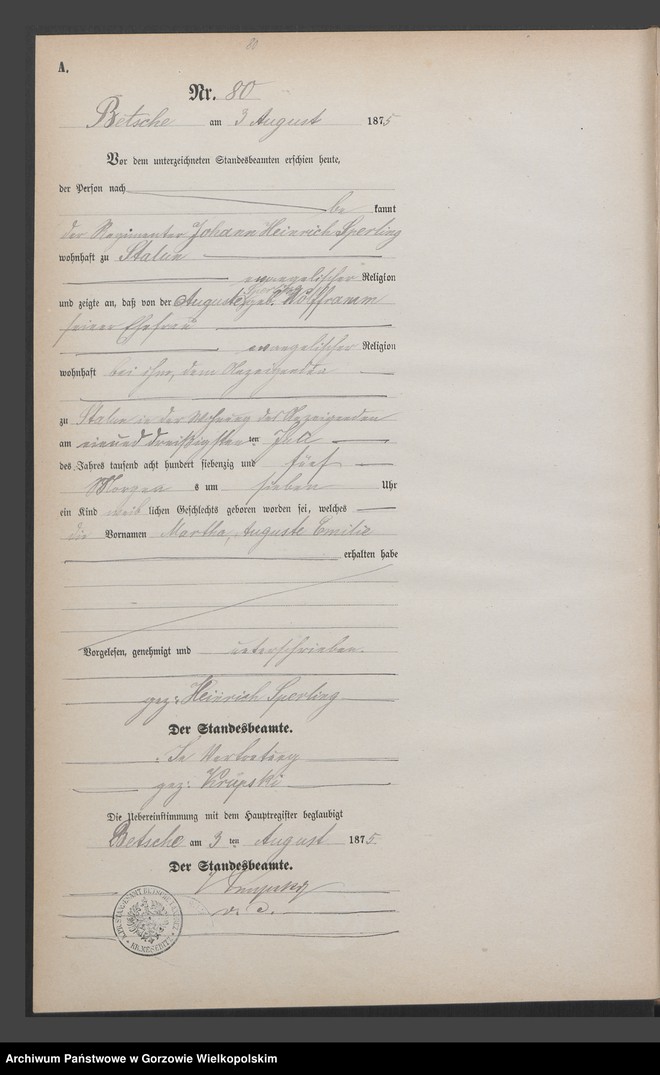 80
A.
Nr. 80
Betsche am 3 August 1875
Vor dem unterzeichneten Standesbeamten erschien heute,
der Person nach
be kannt
der Johann Heinrich Sperling
wohnhaft zu Stalun
evangelischer Religion
und zeigte an, daß von der Auguste Sperling geb. Wolfframm
seiner Ehefrau
evangelischer Religion
wohnhaft bei ihm, dem Anzeigenden
zu Stalun in der Wohnung des Anzeigenden
am einund dreißigsten ten Juli
des Jahres tausend acht hundert siebenzig und fünf
Morgen s um sieben Uhr
ein Kind weib lichen Geschlechts geboren worden sei, welches
die Vornamen Martha, Auguste Emilie
erhalten habe
Vorgelesen, genehmigt und unterschrieben.
gez: Heinrich Sperling
Der Standesbeamte.
In Vertretung
gez: Krupski
Die Uebereinstimmung mit dem Hauptregister beglaubigt
Betsche am 3 ten August 1875
Der Standesbeamte.
KR. MESERITZ
Archiwum Państwowe w Gorzowie Wielkopolskim